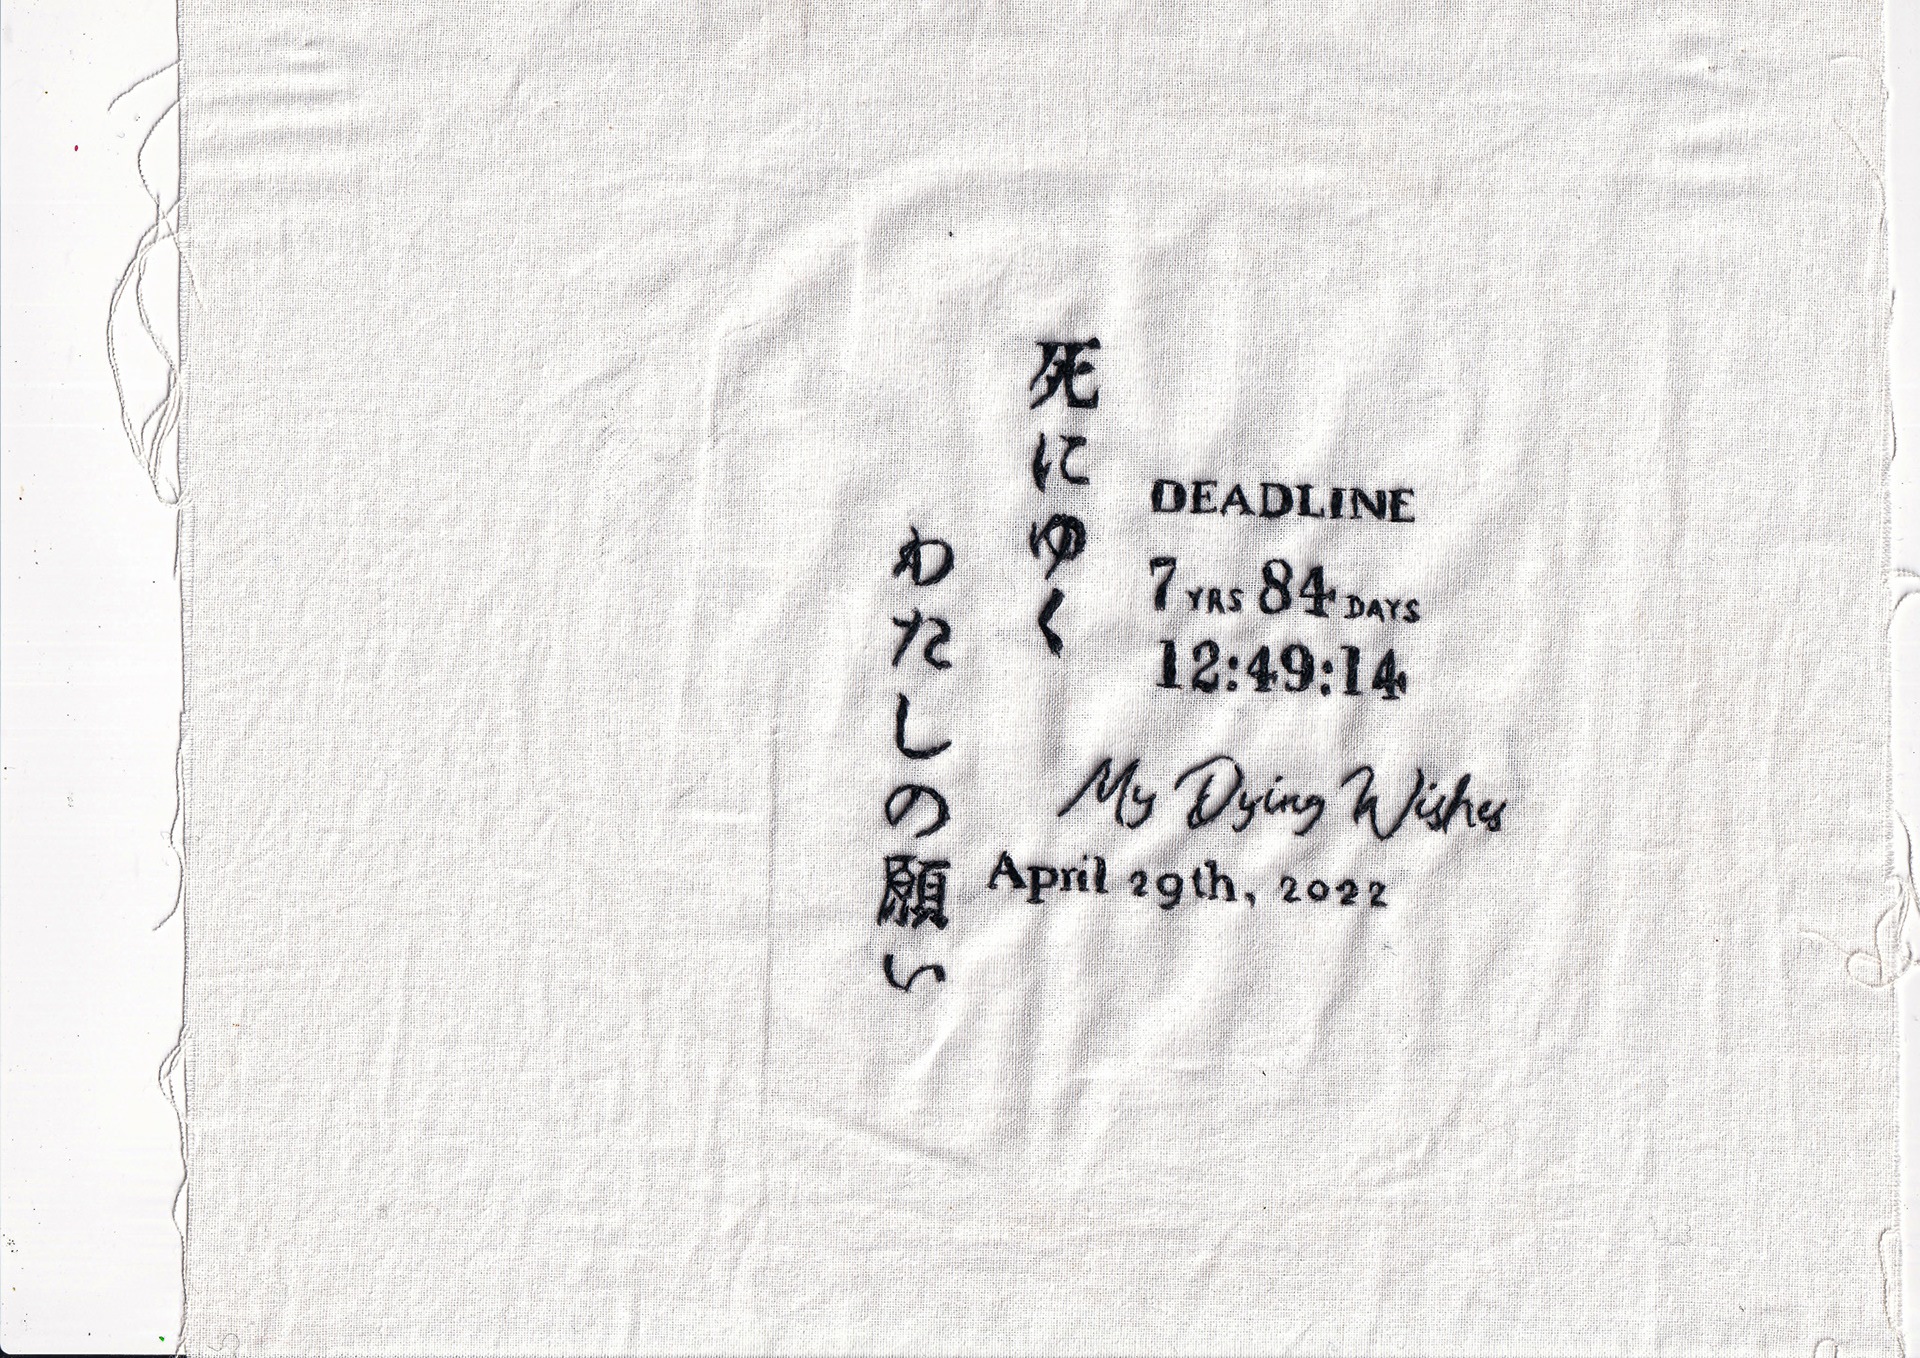 死にゆく
わたしの願い
DEADLINE
7 YRS 84 DAYS
12:49:14
My Dying Wishes
April 29th, 2022